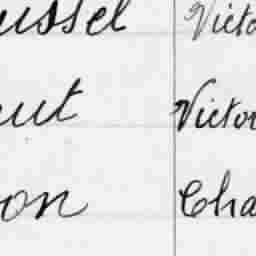 ussel Victo
eut Victor
on Cha